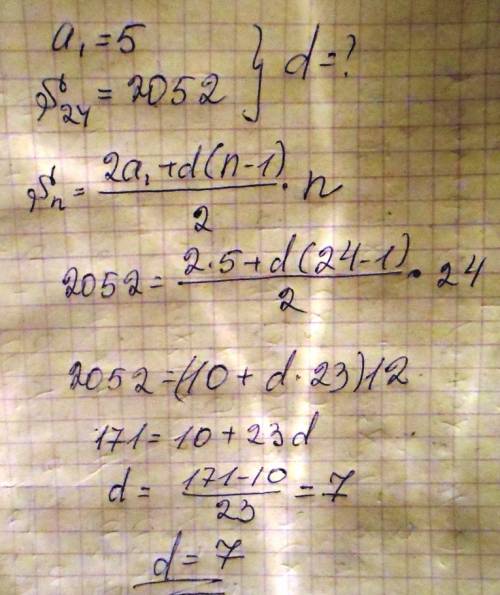 a₁ = 5
S₂₄ = 2052 } d = ?
Sₙ = (2a₁ + d(n-1))/2 · n
2052 = (2·5 + d(24-1))/2 · 24
2052 = (10 + d·23)12
171 = 10 + 23d
d = (171-10)/23 = 7
d = 7